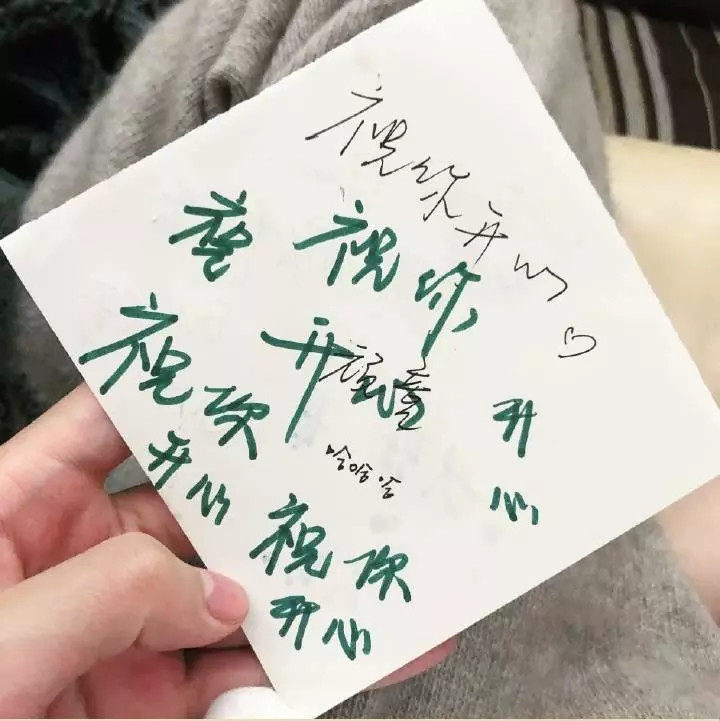 祝你开心♡
祝你
开心
祝你
开心
哈哈哈
开
心
祝你
开心